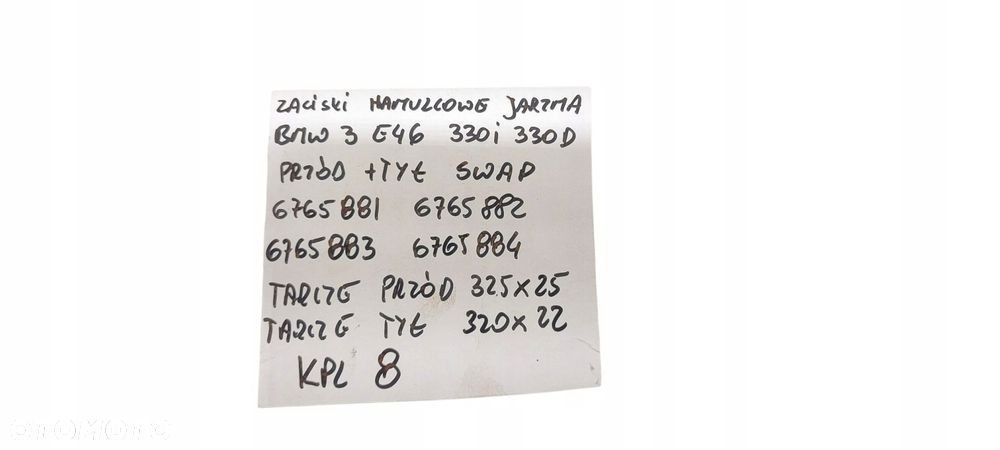 ZACiSKi HAMULCOWE JARZMA
BMW 3 E46 330i 330D
PRZÓD +TYŁ SWAP
6765881 6765882
6765883 6765884
TARCZE PRZÓD 325x25
TARCZE TYŁ 320x22
KPL 8
OTOMOTO